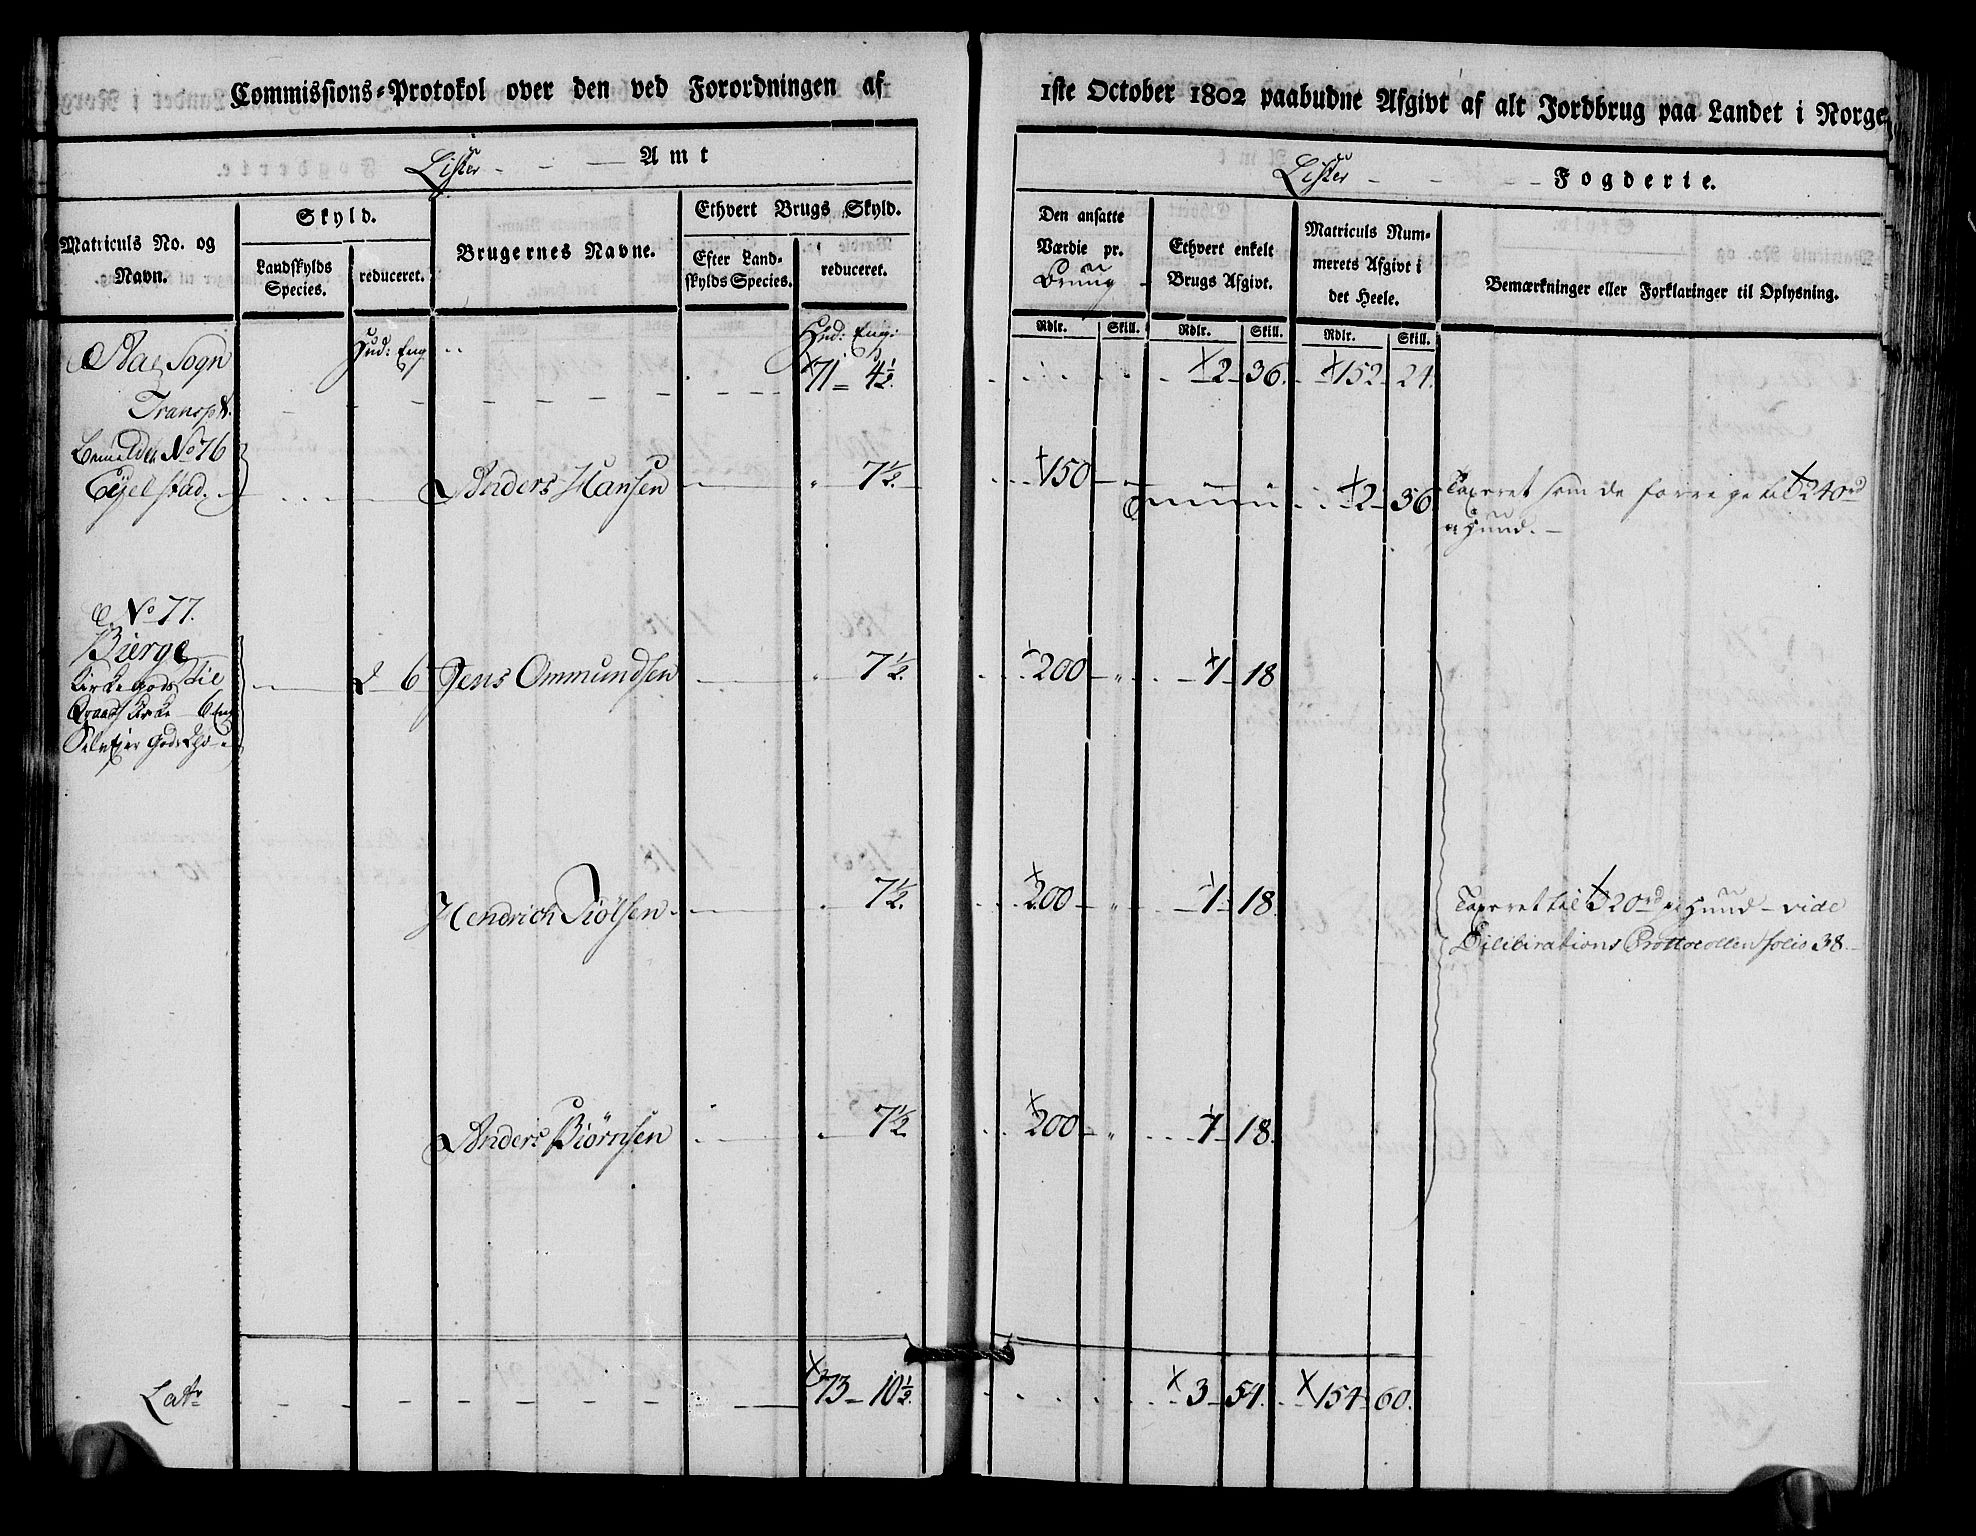 Commissions-Protokol over den ved Forordningen af
1ste October 1802 paabudne Afgivt af alt Jordbrug paa Landet i Norge
Lister - - - Amt
Lister - - - Fogderie.
Matriculs No. og Navn.
Skyld.
Landskylds Species.
reduceret.
Brugernes Navne.
Ethvert Brugs Skyld.
Efter Landskylds Species.
reduceret.
Den ansatte Værdie pr.
Ethvert enkelt Brugs Afgivt.
Matriculs Nummerets Afgivt i det Heele.
Bemærkninger eller Forklaringer til Oplysning.
Rdlr. Skill. Rdlr. Skill. Rdlr. Skill.
Sogn Hud: Eng. Hud: Eng:
71 - 4½ 2 - 36. 152 - 24.
Transpt.
No 76
Anders Hansen 7½ 150 - 2 - 36 Taxeret som de forrige til 240 rd
a Hud.
No 77.
Bierge
Kirkegods til 2 6 Jens Ommundsen 7½ 200 - " 1 - 18
Kirke 6 Eng
Hendrich Tiölsen 7½ 200 - " 1 - 18 Taxeret til 320 rd pr Hud - vide
Dilibirations Prottocollen folio 38
Anders Biörnsen 7½ 200 - " 1 - 18
Latr 73 - 10½. 3 - 54. 154 - 60.